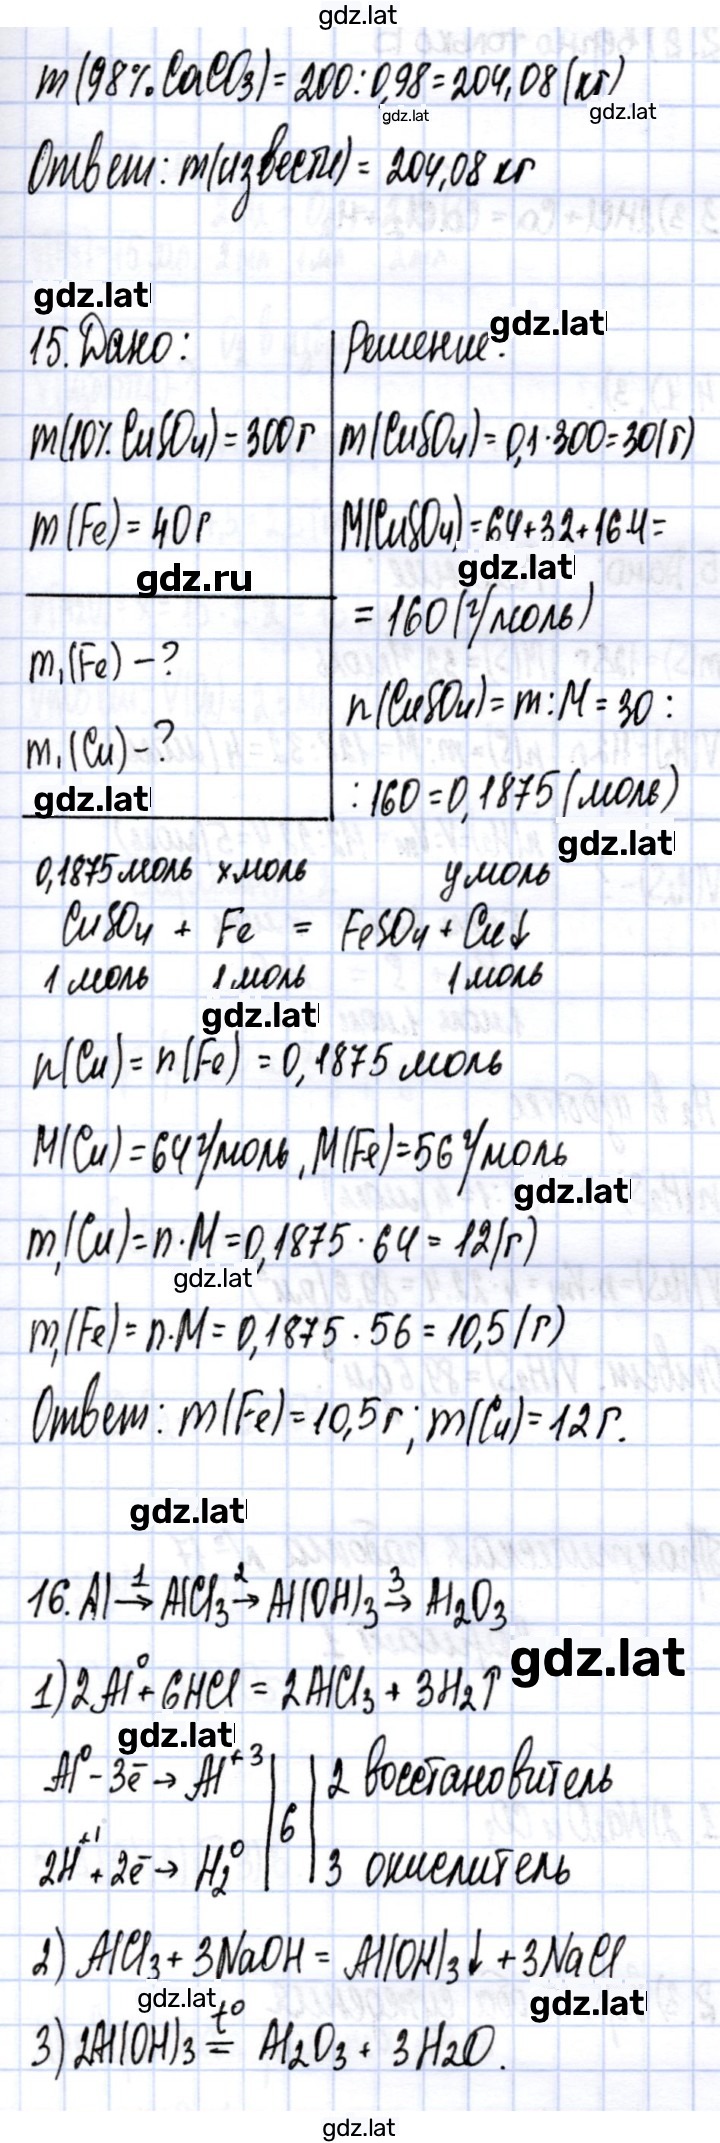 gdz.lat
m(98% CaCO3) = 200 : 0,98 = 204,08 (кг)
gdz.lat
gdz.lat
Ответ: m(извести) = 204,08 кг
gdz.lat
gdz.lat
15. Дано: Решение:
m(10% CuSO4) = 300 г m(CuSO4) = 0,1·300 = 30 (г)
m(Fe) = 40 г M(CuSO4) = 64+32+16·4 =
gdz.ru gdz.lat
= 160 (г/моль)
m₁(Fe) – ?
n(CuSO4) = m : M = 30 :
m₁(Cu) – ?
gdz.lat : 160 = 0,1875 (моль)
gdz.lat
0,1875 моль x моль y моль
CuSO4 + Fe = FeSO4 + Cu↓
1 моль 1 моль 1 моль
gdz.lat
n(Cu) = n(Fe) = 0,1875 моль
M(Cu) = 64 г/моль, M(Fe) = 56 г/моль
gdz.lat
m₁(Cu) = n·M = 0,1875 · 64 = 12 (г)
gdz.lat
m₁(Fe) = n·M = 0,1875 · 56 = 10,5 (г)
Ответ: m(Fe) = 10,5 г; m(Cu) = 12 г.
gdz.lat
16. Al →¹ AlCl3 →² Al(OH)3 →³ Al2O3
gdz.lat
1) 2Al⁰ + 6HCl = 2AlCl3 + 3H2↑
gdz.lat
Al⁰ – 3ē → Al⁺³ | 6 | 2 восстановитель
2H⁺¹ + 2ē → H2⁰ | | 3 окислитель
2) AlCl3 + 3NaOH = Al(OH)3↓ + 3NaCl
gdz.lat gdz.lat
3) 2Al(OH)3 =t⁰ Al2O3 + 3H2O.
gdz.lat